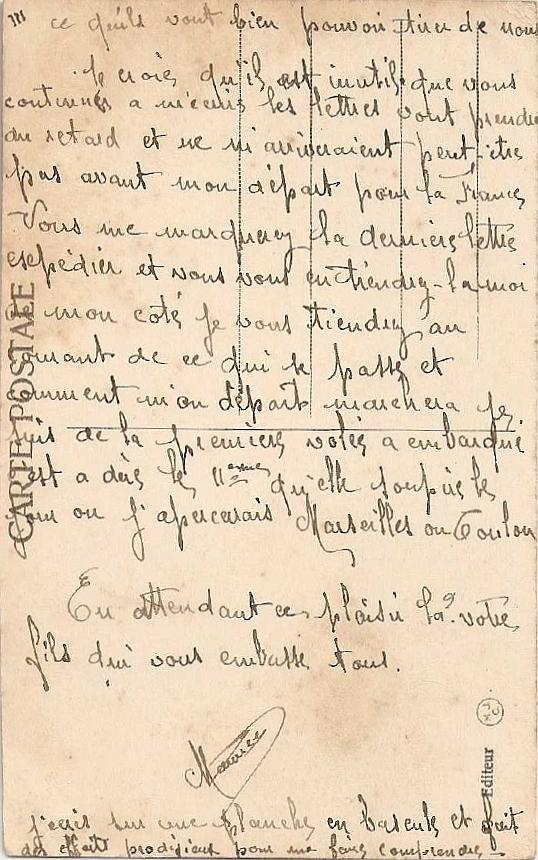 ce qu'ils vont bien pouvoir tirer de nous
Je crois qu'il est inutile que vous
continuer a m'écrire les lettres vont prendre
du retard et ne m'arriveraient peut-être
pas avant mon départ pour la France
Vous me marquerez la dernière lettre
espédier et vous vous en tiendrez-la moi
de mon coté je vous tiendrez au
courant de ce qui se passe et
comment mon départ marchera je
suis de la première volée a embarqué
est a dire le 11eme qu'elle soupir le
jour ou j'apercevrais Marseilles ou Toulon
En attendant ce plaisir la votre
fils qui vous embrasse tous.
Maurice
j'écris sur une planche en bascule et fait
des effort prodigieux pour me faire comprendre
CARTE POSTALE
Editeur